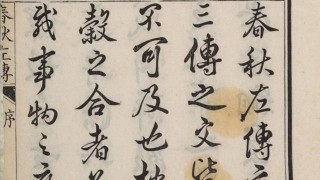 春秋左傳
三傳之文
不可及也
穀之合者
事物之
春秋左傳 序